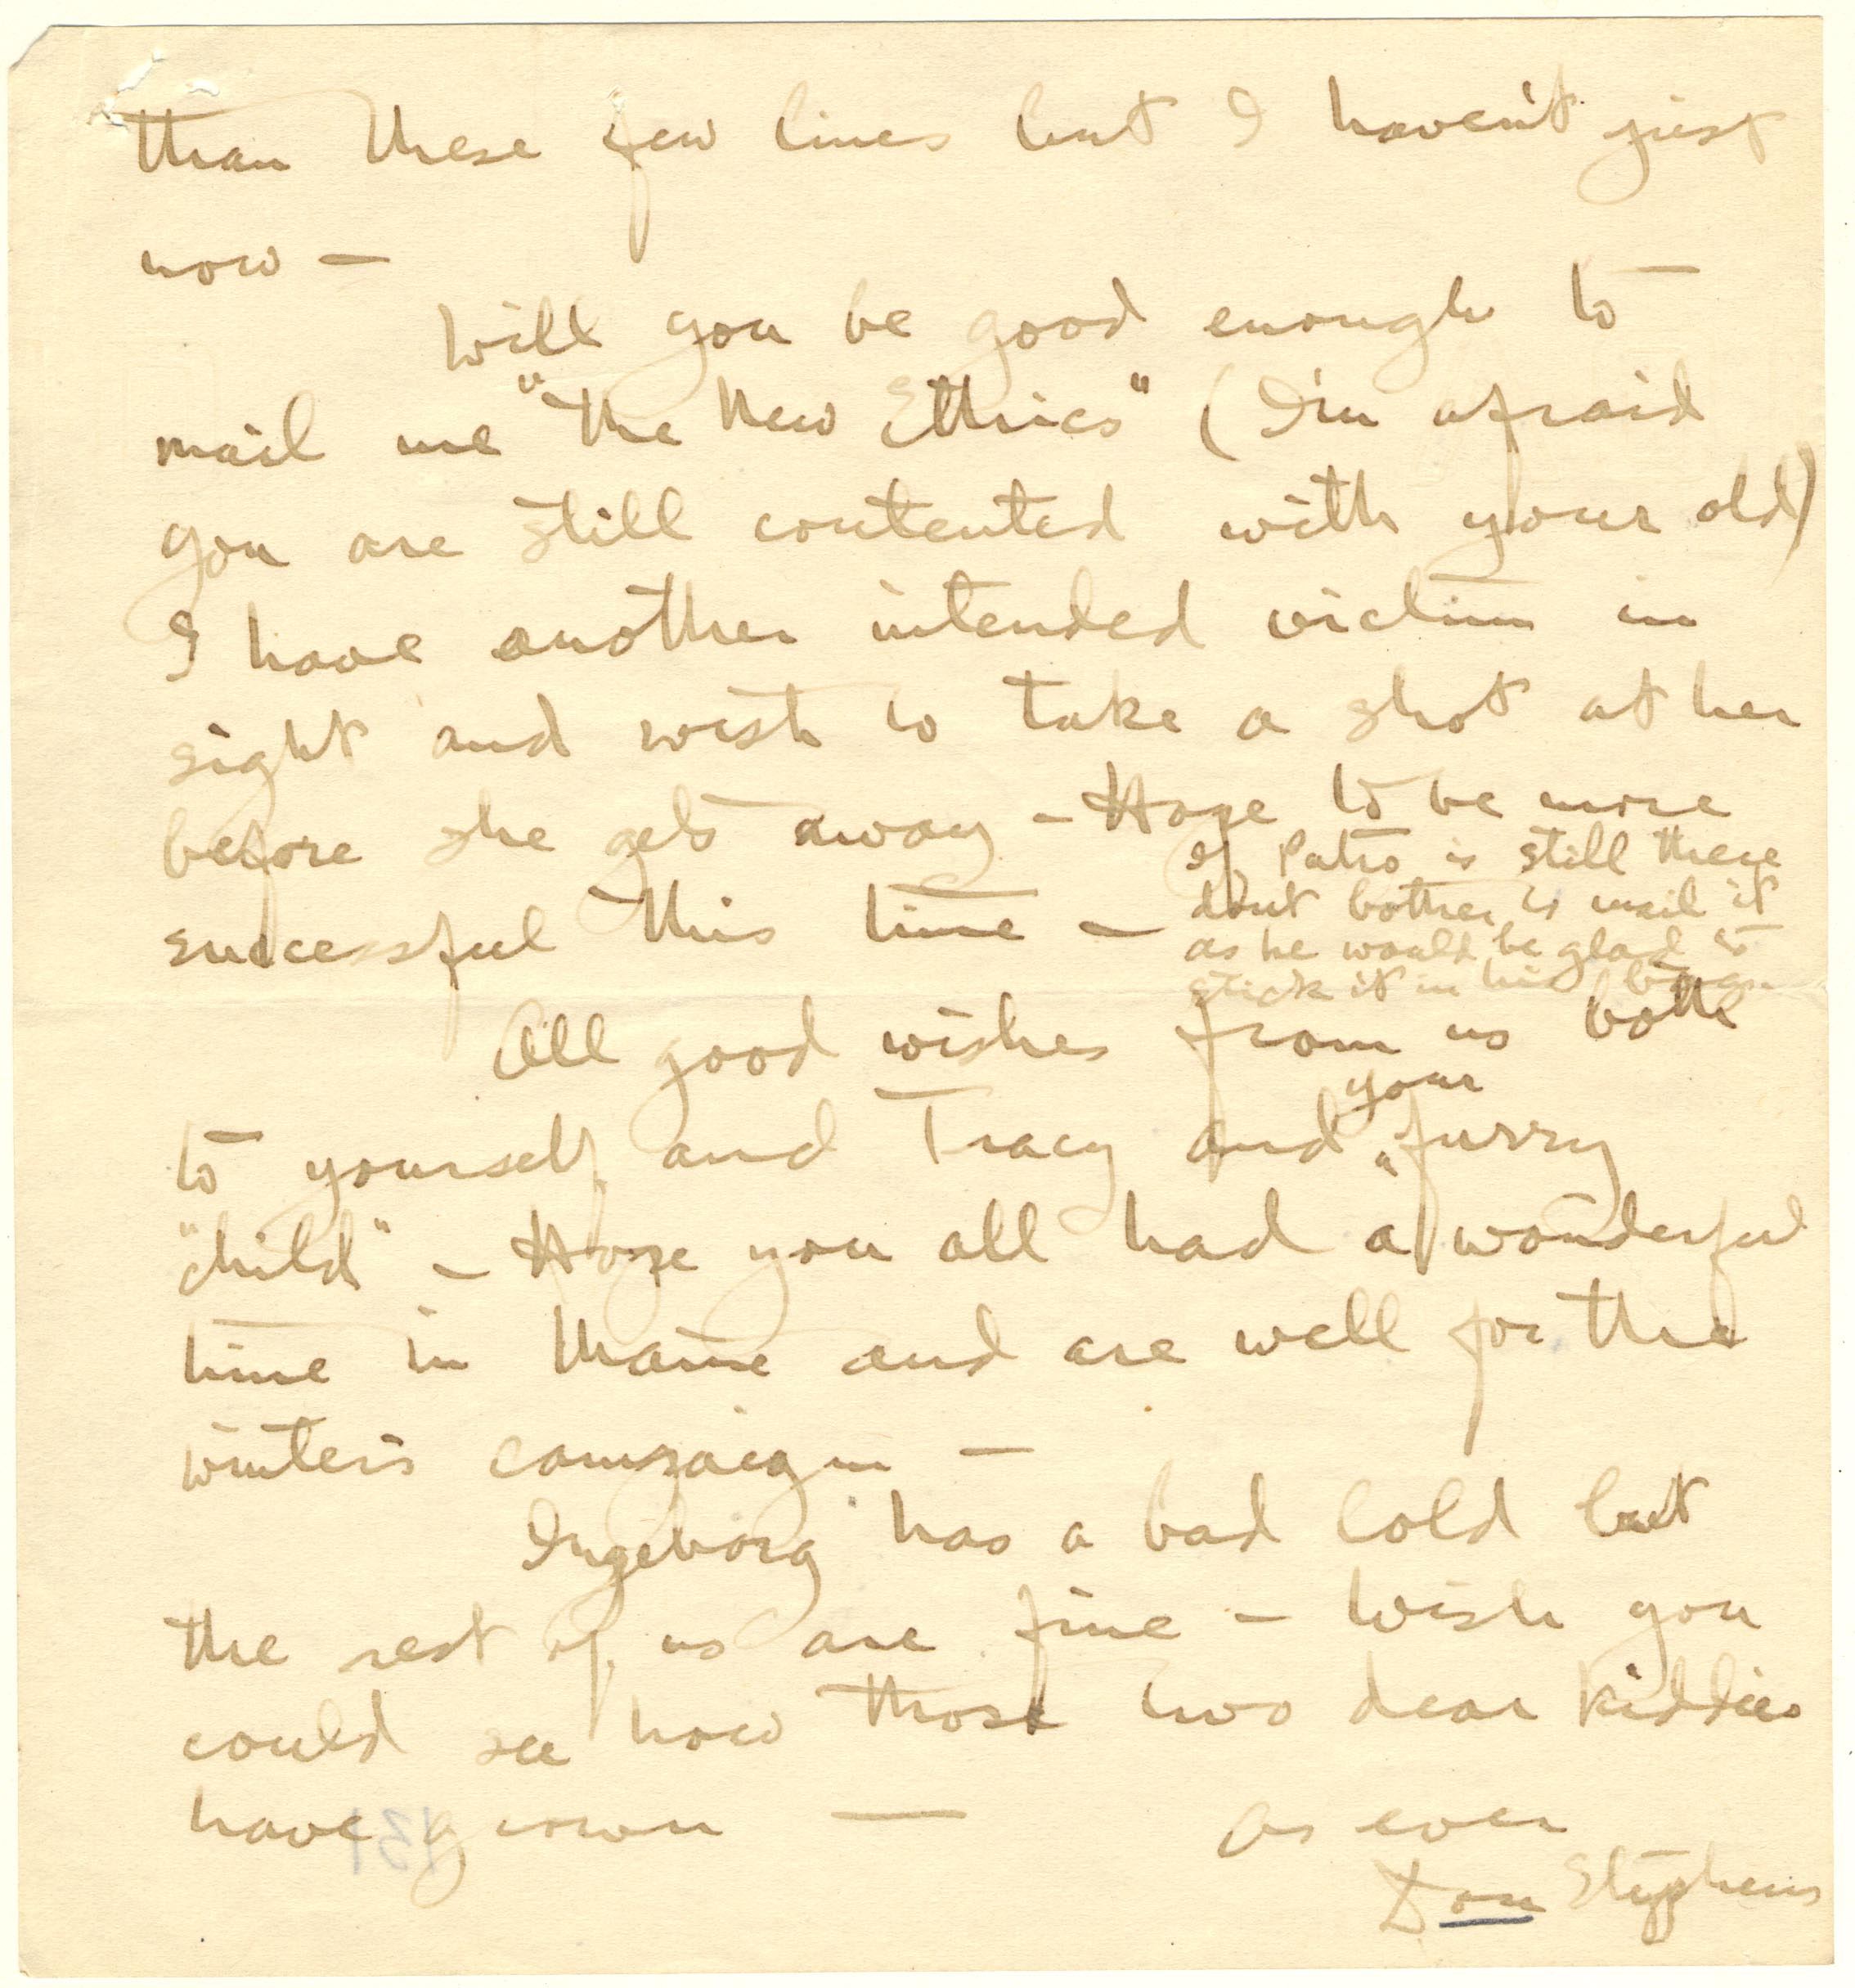 than these few lines but I haven't just
now —
Will you be good enough to
mail me "The New Ethics" (I'm afraid
you are still contented with your old)
I have another intended victim in
sight and wish to take a shot at her
before she gets away — Hope to be more
successful this time —
If Patro is still there
dont bother to mail it
as he would be glad to
stick it in his bag.
All good wishes from us both
your
to yourself and Tracy and "furry
"child" — Hope you all had a wonderful
time in Maine and are well for the
winter's campaign —
Ingeborg has a bad cold but
the rest of us are fine — Wish you
could see how those two dear kiddies
have grown —
As ever
Don Stephens